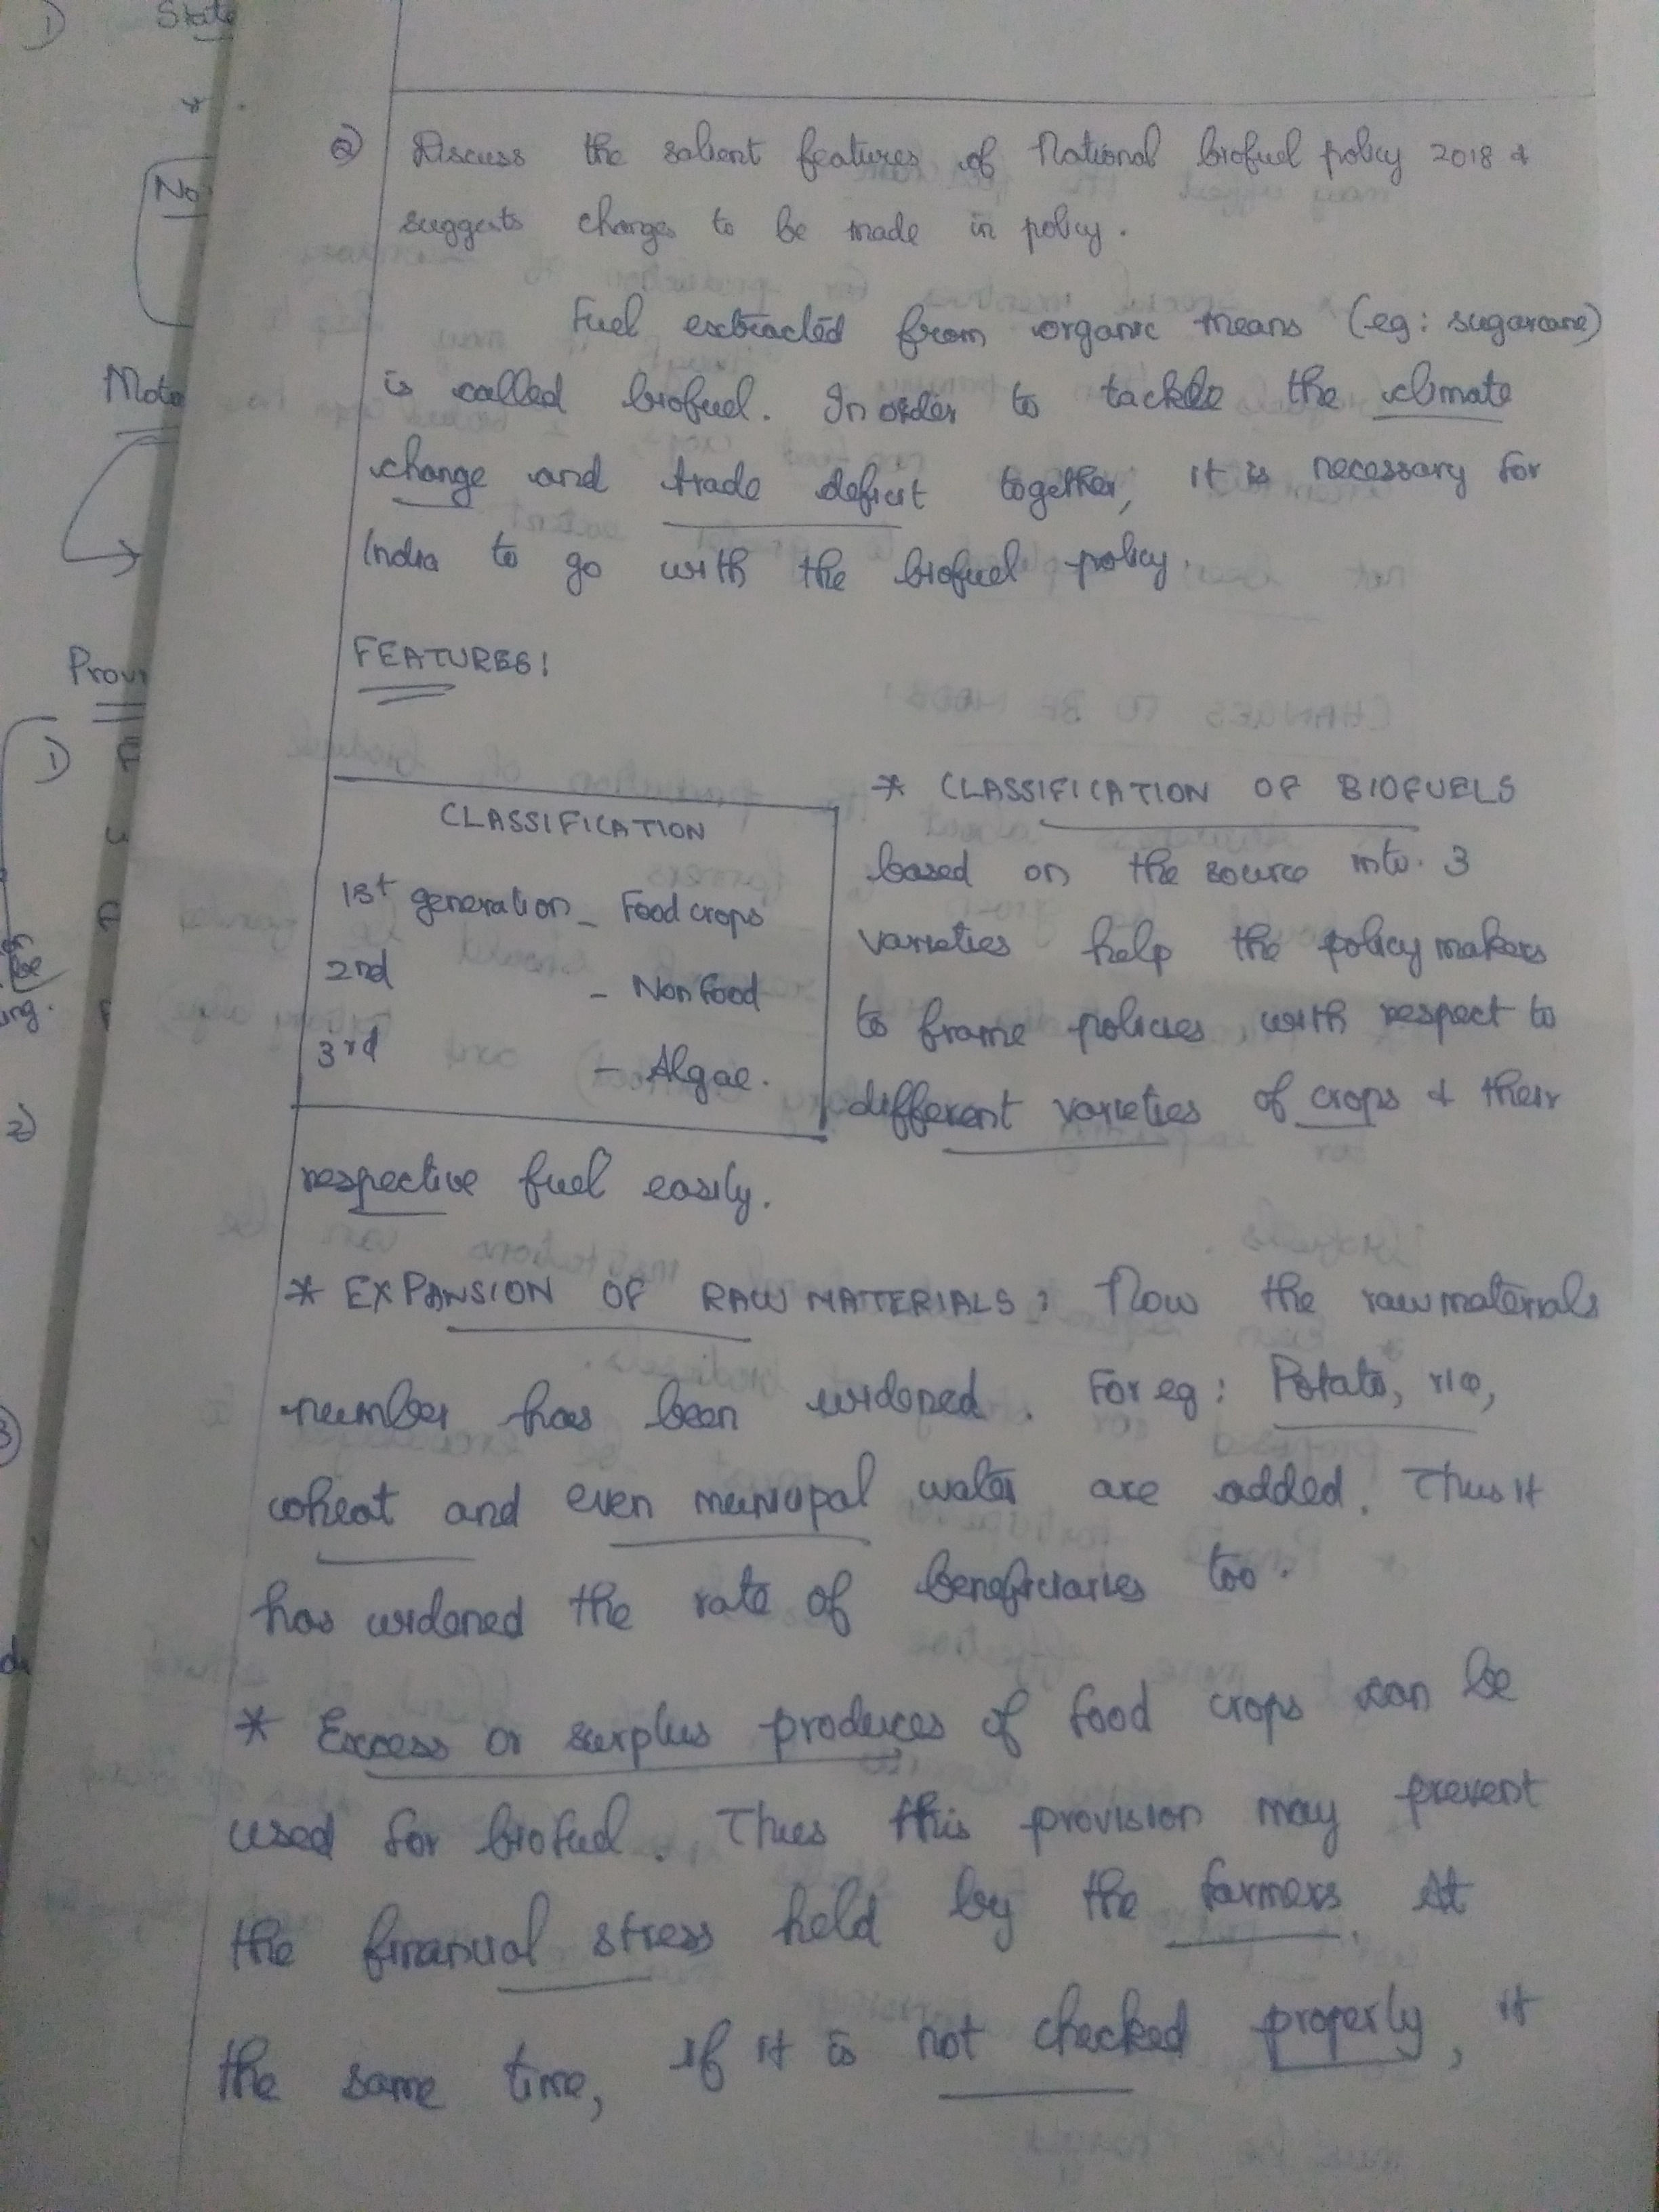 1) State
No
Moto
Provi
1)
2)
2) Discuss the salient features of National biofuel policy 2018 &
suggests changes to be made in policy.
Fuel extracted from organic means (eg: sugarcane)
is called biofuel. In order to tackle the climate
change and trade deficit together, it is necessary for
India to go with the biofuel policy.
FEATURES:
CLASSIFICATION
1st generation - Food crops
2nd - Non food
3rd - Algae.
* CLASSIFICATION OF BIOFUELS
based on the source into 3
varieties help the policy makers
to frame policies with respect to
different varieties of crops & their
respective fuel easily.
* EXPANSION OF RAW MATERIALS: Now the raw materials
number has been widened. For eg: Potato,
wheat and even municipal water are added. Thus it
has widened the rate of beneficiaries too.
* Excess or surplus produces of food crops can be
used for biofuel. Thus this provision may prevent
the financial stress held by the farmers. At
the same time, if it is not checked properly, it